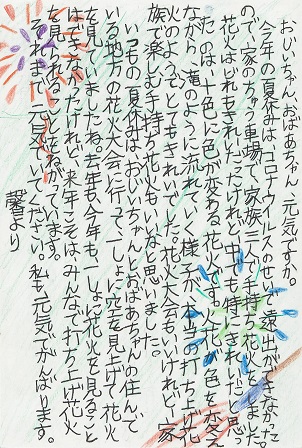 おじいちゃん、おばあちゃん、元気ですか。
今年の夏休みはコロナウイルスのせいで遠出ができなかった
ので、家のちゅう車場で、家族三人で手持ち花火をしました。
花火はどれもきれいだったけれど、中でも特にきれいだと思っ
たのは、十色に色が変わる花火です。花火が色を変え
ながら、滝のように流れていく様子が、本当の打ち上げ花
火のようで、とてもきれいでした。花火大会もいいけれど、家
族で楽しむ手持ち花火もいいなと思いました。
いつもの夏休みは、おじいちゃんとおばあちゃんの住んで
いる地方の花火大会に行って、いっしょに空を見上げて花火
を見ていましたね。去年も今年も、いっしょに花火を見ること
はできなかったけれど、来年こそは、みんなで打ち上げ花火
を見れることをねがっています。
それまで、元気でいてください。私も元気でがんばります。
馨より